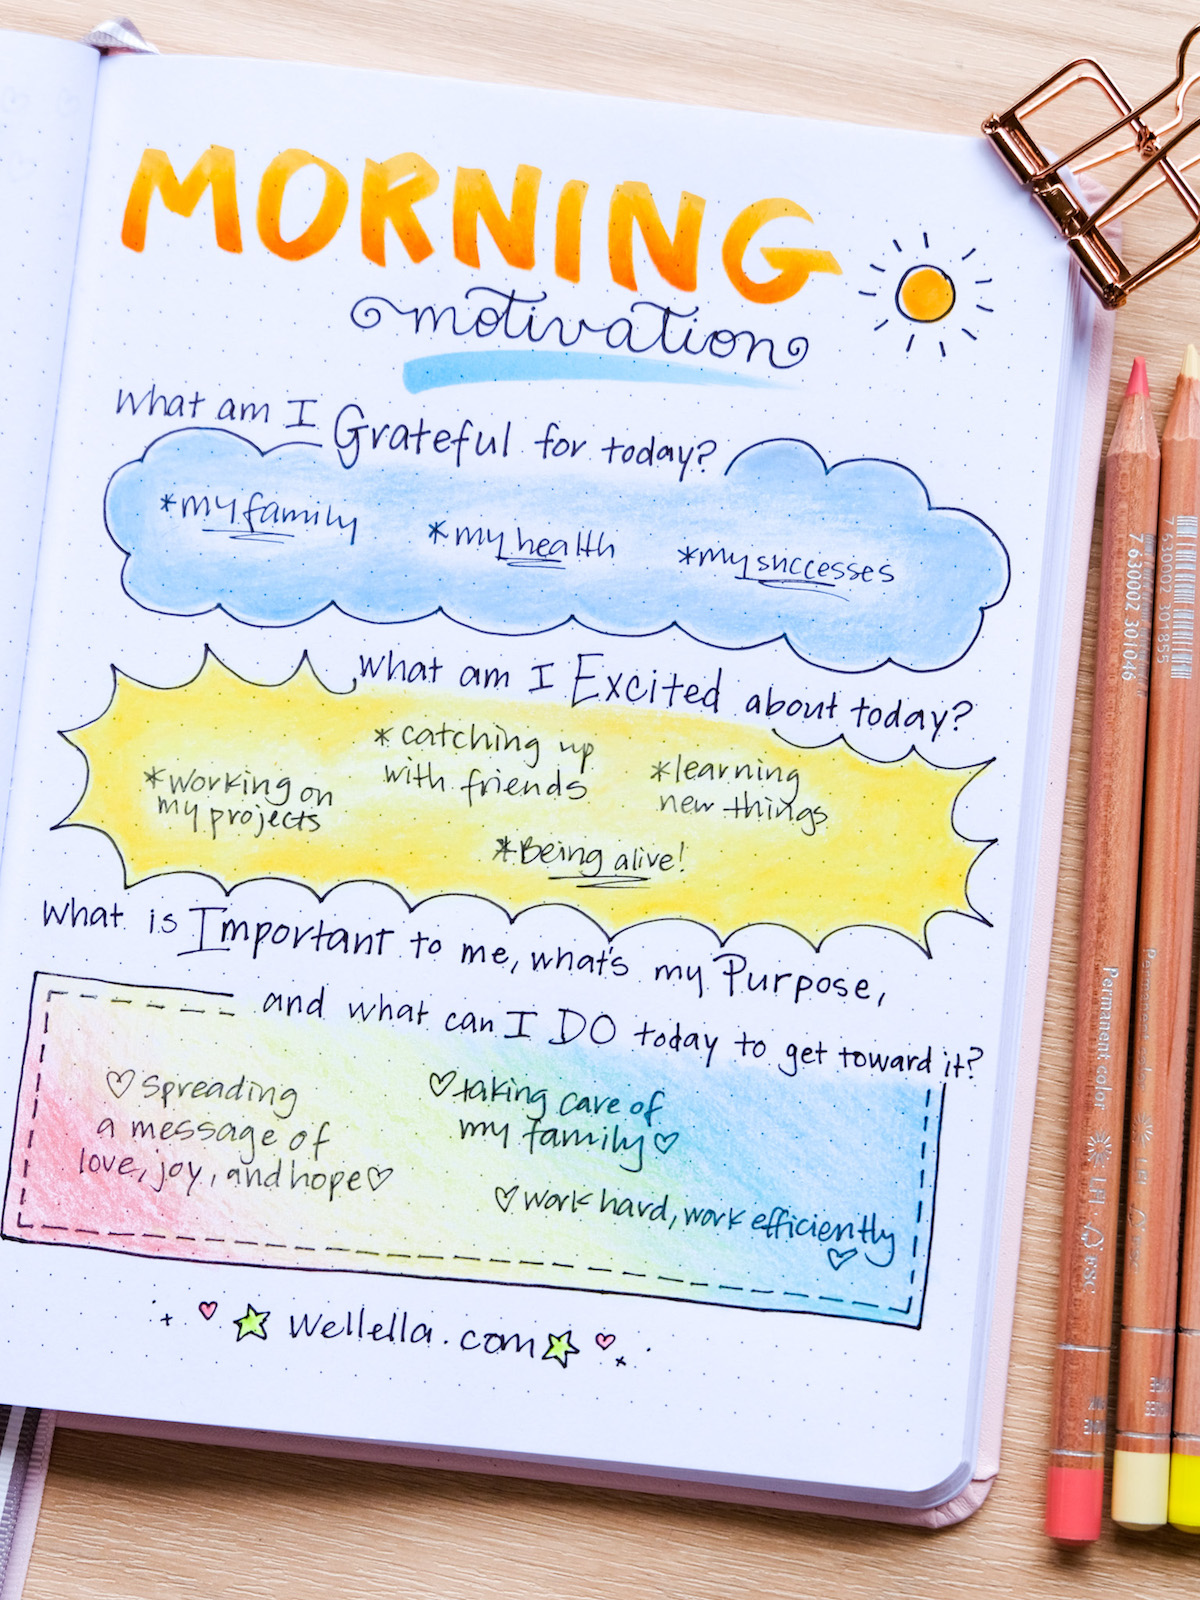 MORNING
motivation
What am I Grateful for today?
*my family *my health *my successes
What am I Excited about today?
*working on
my projects
*catching up
with friends
*learning
new things
*Being alive!
What is Important to me, what's my Purpose,
and what can I DO today to get toward it?
♡ Spreading
a message of
love, joy, and hope ♡
♡ taking care of
my family ♡
♡ work hard, work efficiently
♡
wellella.com
7 630002 301046
Permanent color LFI